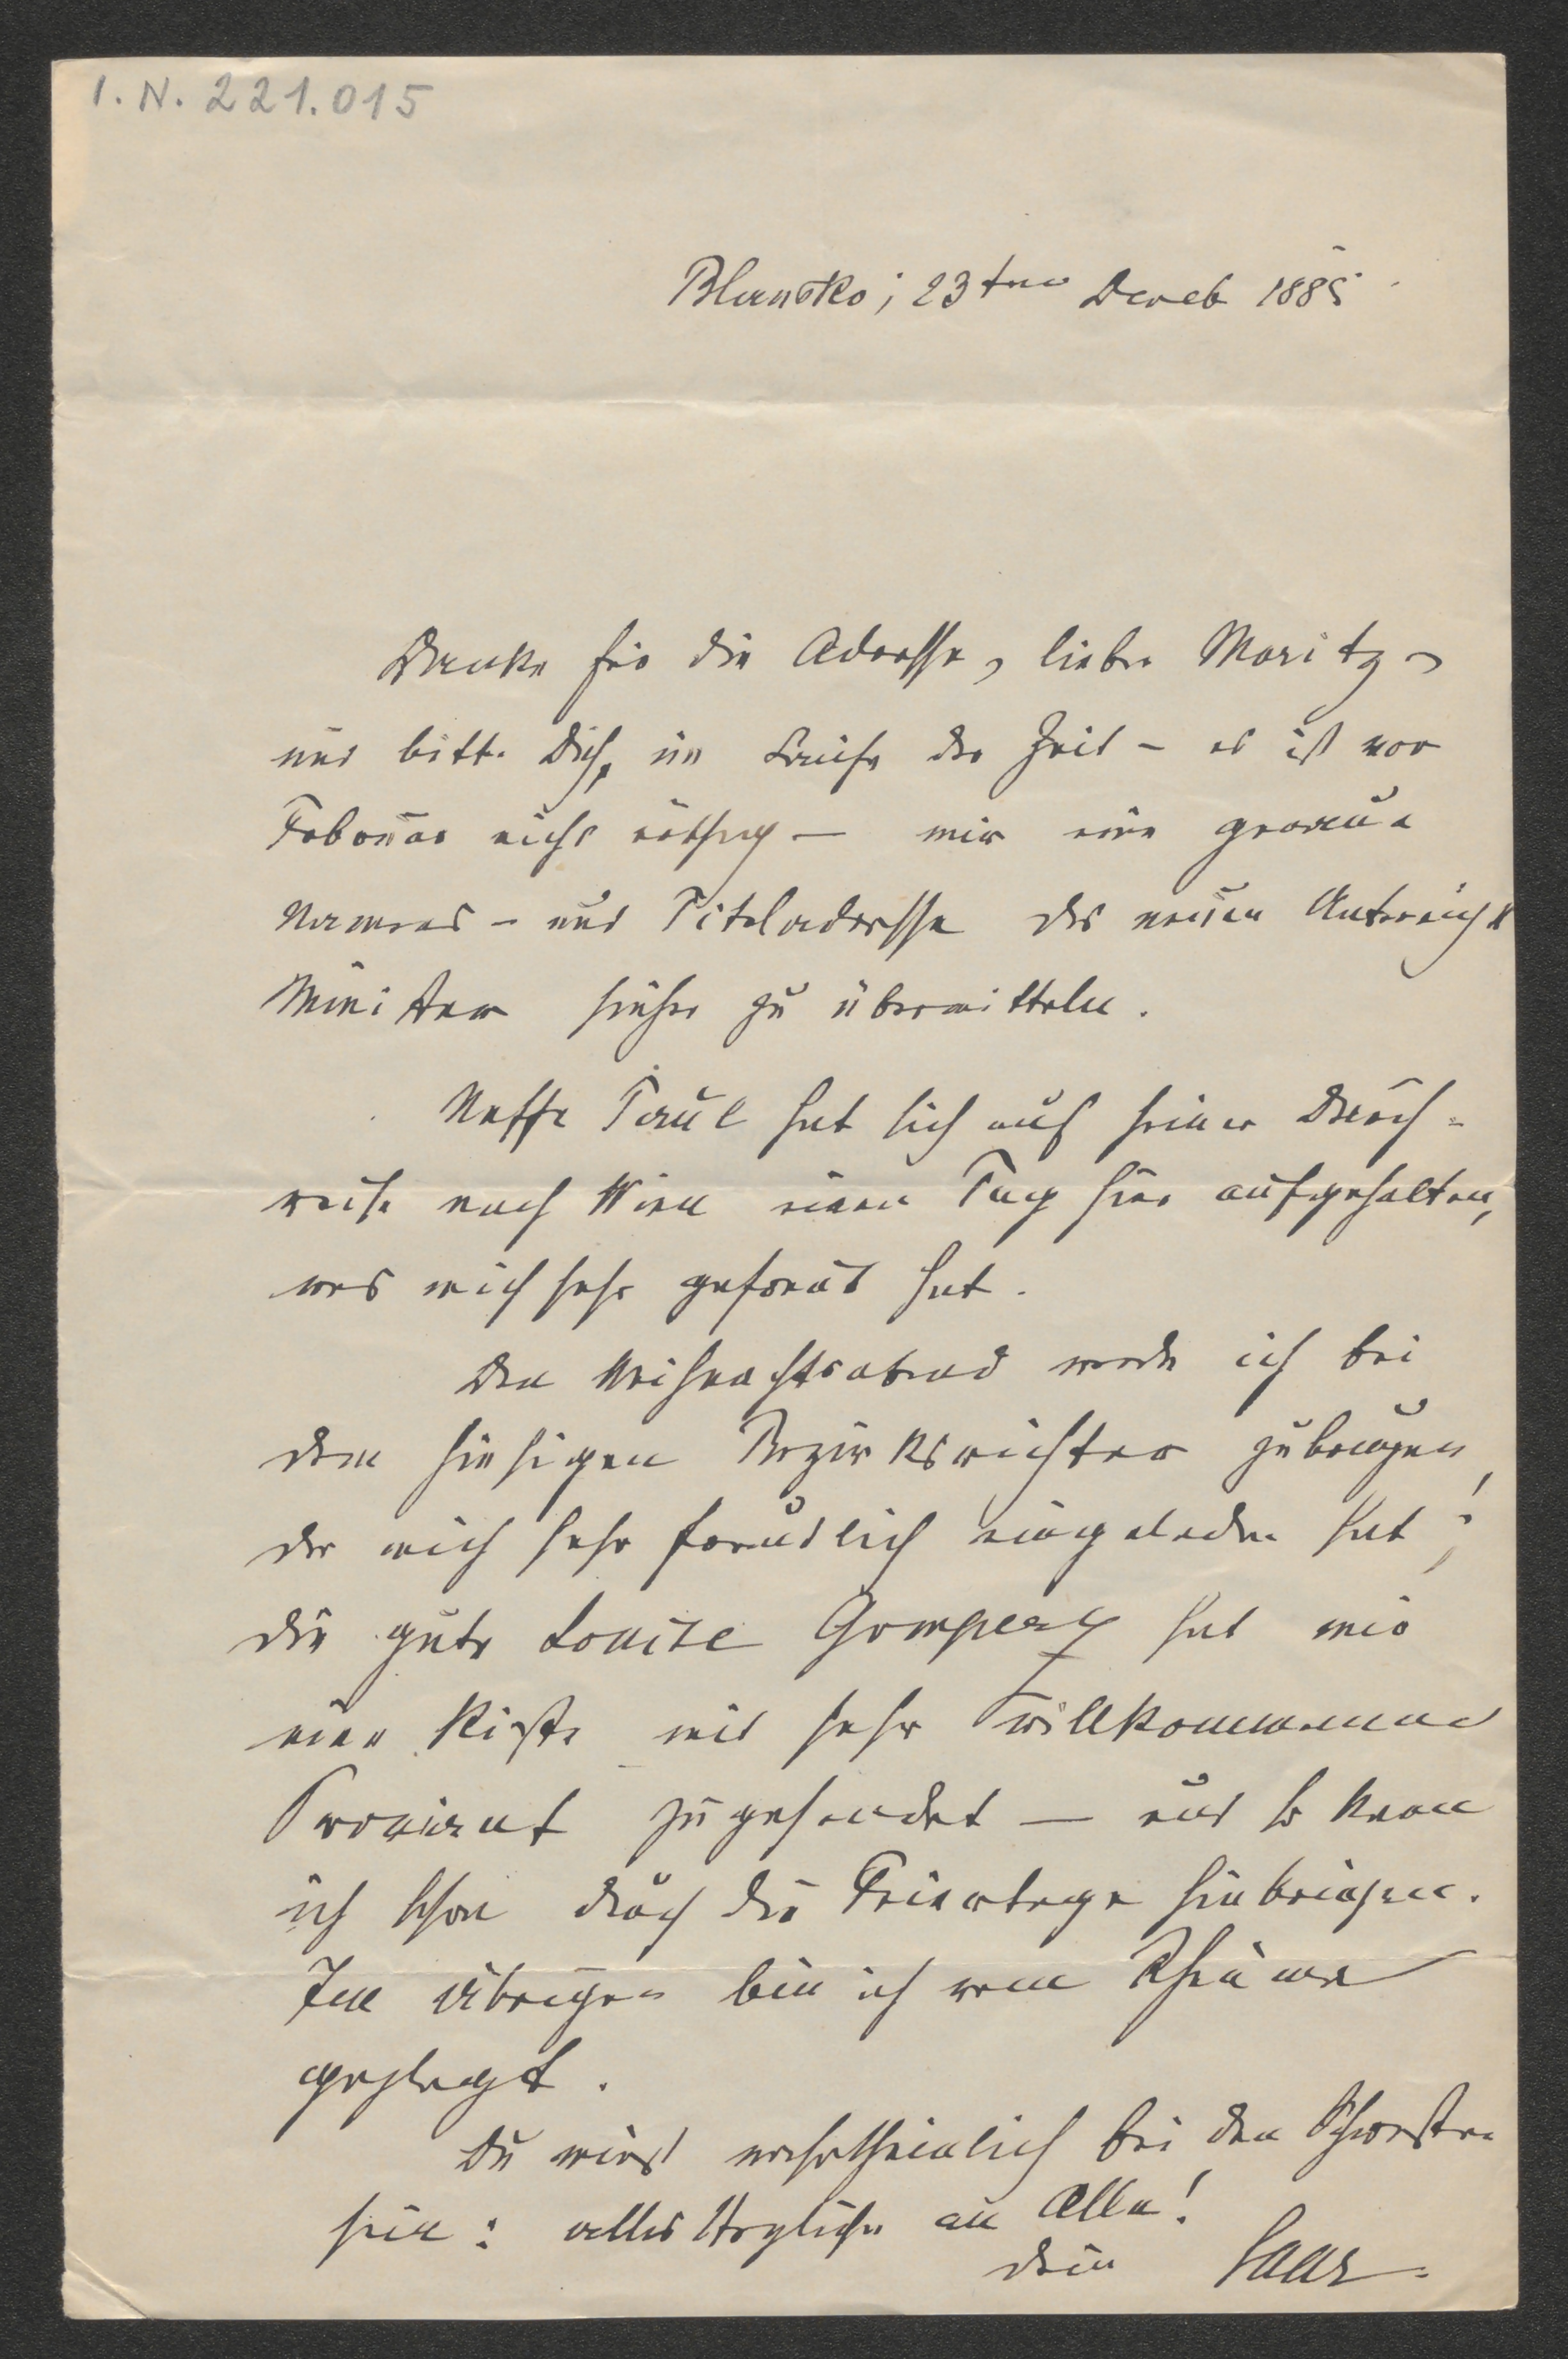 I. N. 221.015
Blansko, 23ten Dezeb 1885
Danke für die Adresse, lieber Moritz,
und bitte Dich, im Laufe der Zeit – es ist vor
Februar nicht nöthig – mir eine genaue
Namens- und Titeladresse des neuen Unterrichts
Ministers hieher zu übermitteln.
Neffe Paul hat sich auf seiner Durch-
reise nach Wien einen Tag hier aufgehalten,
was mich sehr gefreut hat.
Den Weihnachtsabend werde ich bei
dem hiesigen Bezirksrichter zubringen,
der mich sehr freundlich eingeladen hat;
die gute Louise Gomperz hat mir
eine Kiste mit sehr willkommenem
Proviant zugesendet – und so kann
ich schon durch die Feiertage hinbringen.
Im Übrigen bin ich vom Rheuma
geplagt.
Du wirst wahrscheinlich bei den Schwestern
sein: alles Herzliche an Alle!
Dein Saar.